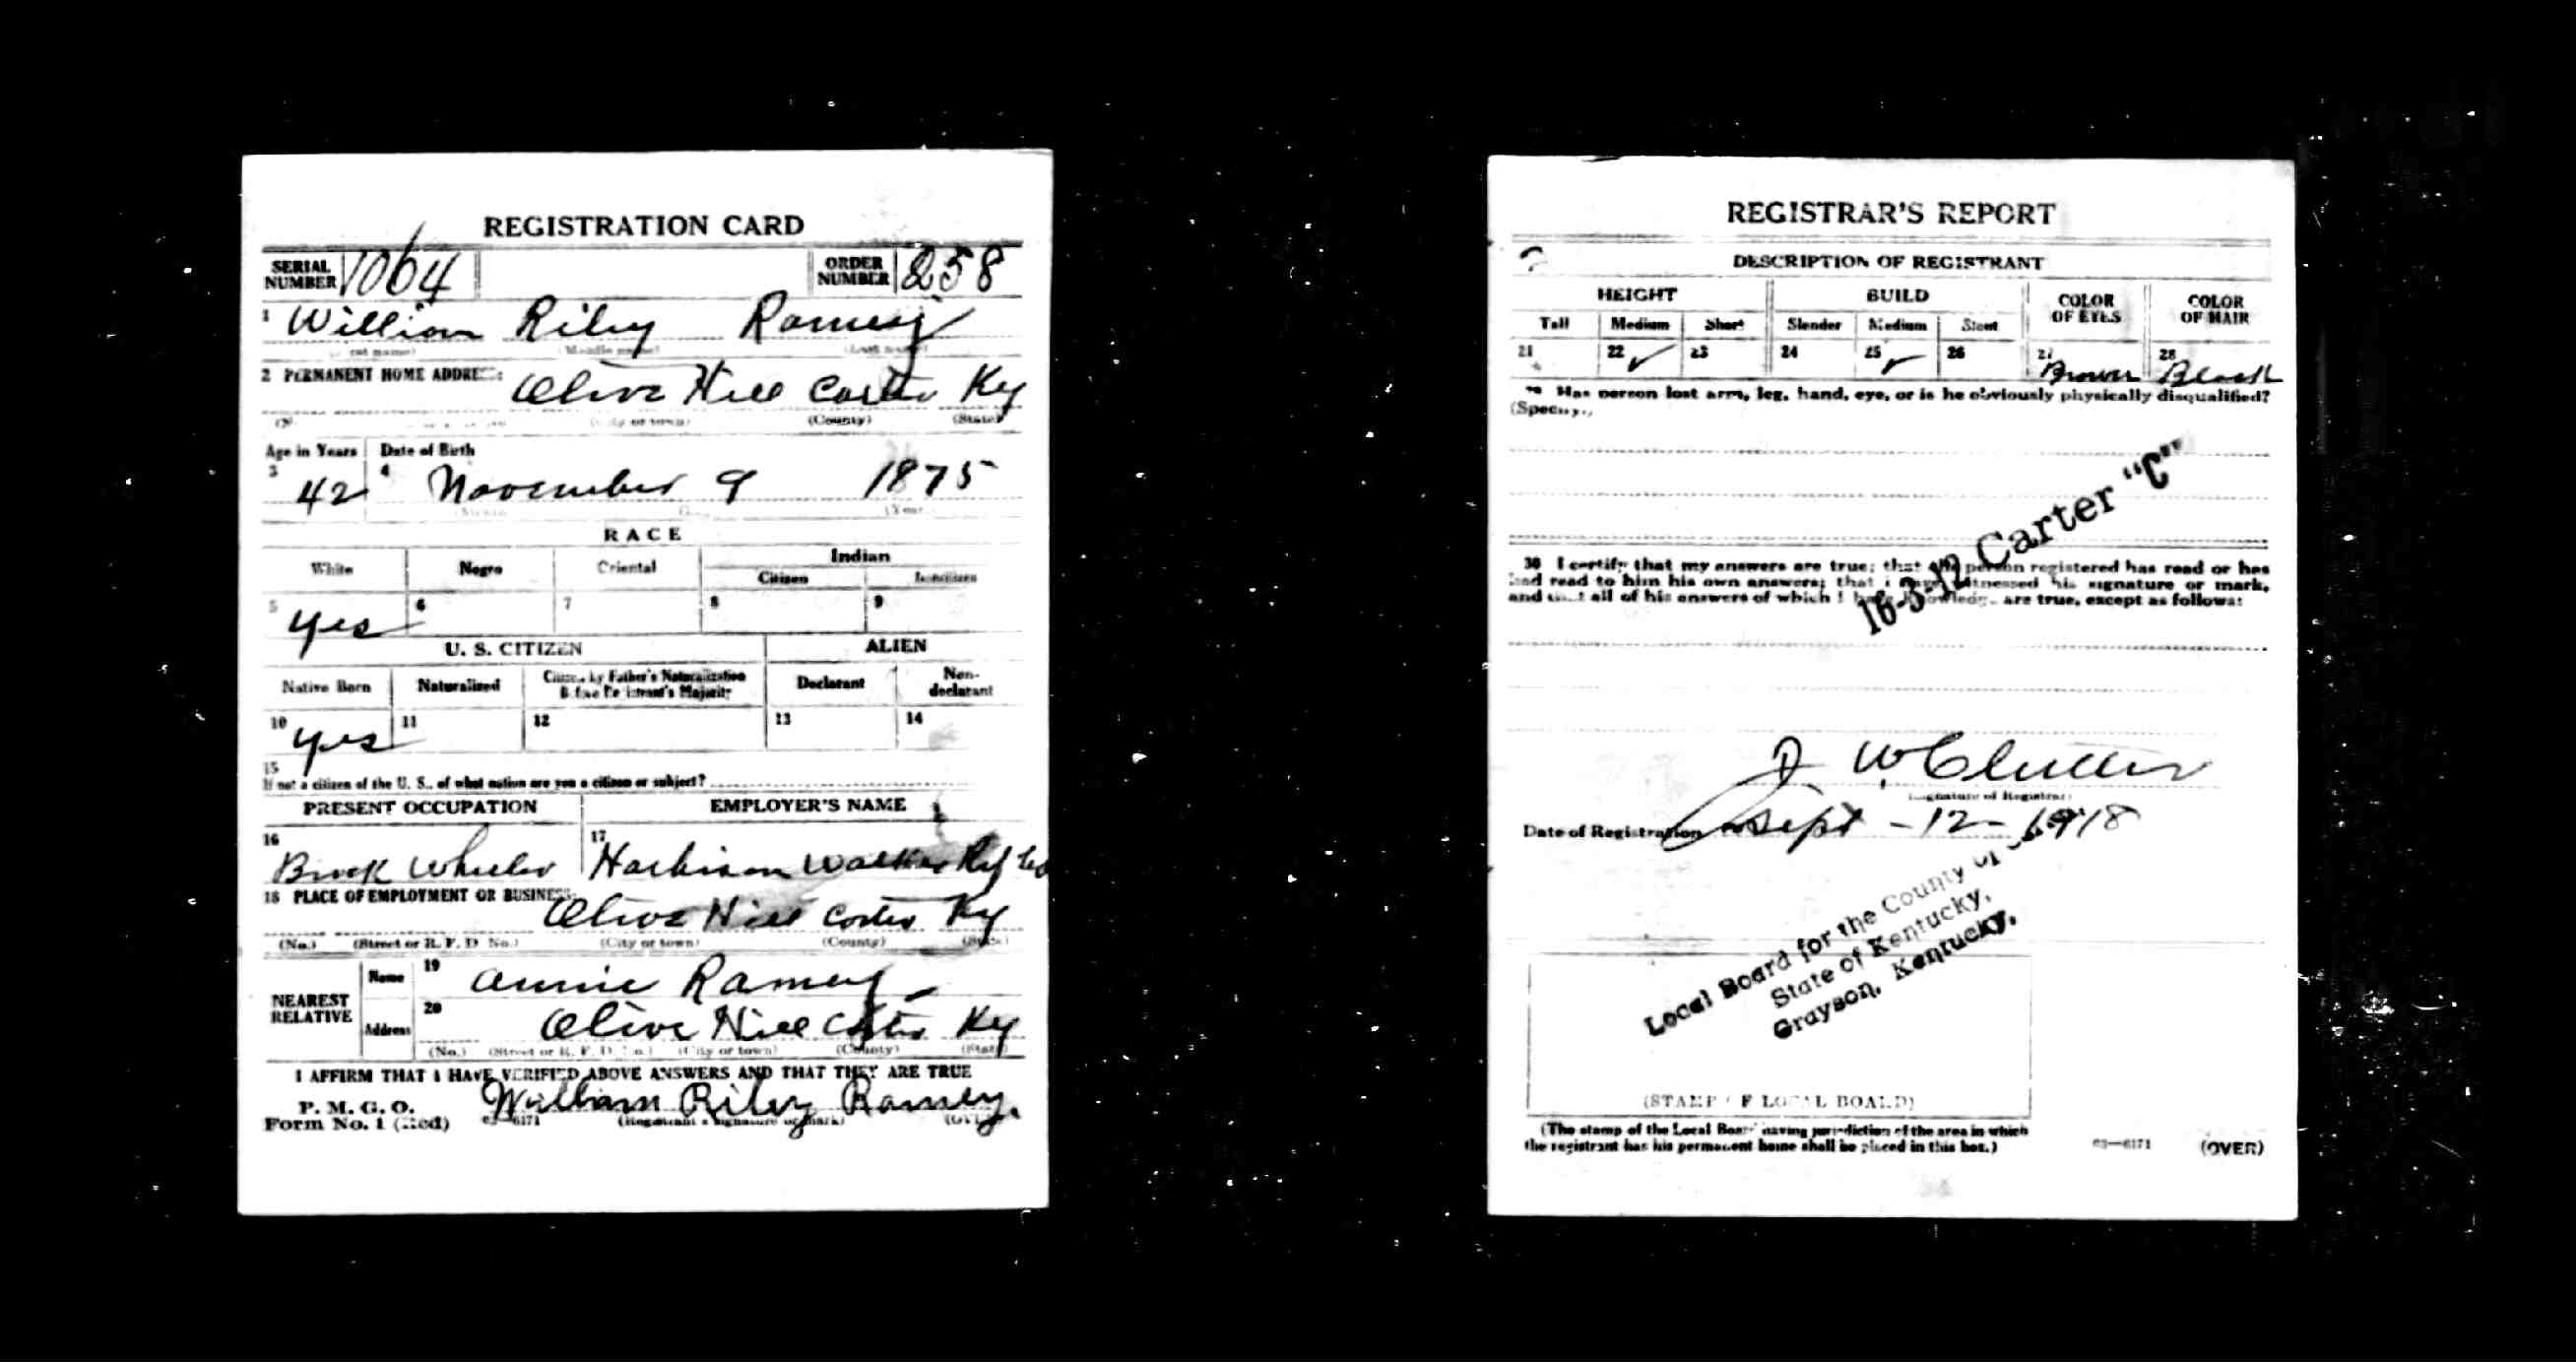 REGISTRATION CARD
SERIAL NUMBER 1064 ORDER NUMBER 258
1 William Riley Ramey
(Middle name) (Last name)
2 PERMANENT HOME ADDRESS: Olive Hill Carter Ky
(City or town) (County) (State)
Age in Years Date of Birth
3 42 4 November 9 1875
RACE
White Negro Oriental Indian
Citizen Noncitizen
5 Yes 6 7 8 9
U. S. CITIZEN ALIEN
Native Born Naturalized Citizen by Father's Naturalization Before Registrant's Majority Declarant Non-declarant
10 Yes 11 12 13 14
15
If not a citizen of the U. S., of what nation are you a citizen or subject?
PRESENT OCCUPATION EMPLOYER'S NAME
16 Brick Wheeler 17 Harbison Walker Ref Co
18 PLACE OF EMPLOYMENT OR BUSINESS: Olive Hill Carter Ky
(No.) (Street or R. F. D. No.) (City or town) (County) (State)
NEAREST RELATIVE Name 19 Annie Ramey
Address 20 Olive Hill Carter Ky
(No.) (Street or R. F. D. No.) (City or town) (County) (State)
I AFFIRM THAT I HAVE VERIFIED ABOVE ANSWERS AND THAT THEY ARE TRUE
P. M. G. O.
Form No. 1 (Red) 03—6171 William Riley Ramey.
(Registrant's signature or mark) (OVER)
REGISTRAR'S REPORT
DESCRIPTION OF REGISTRANT
HEIGHT BUILD COLOR OF EYES COLOR OF HAIR
Tall Medium Short Slender Medium Stout
21 22 ✓ 23 24 25 ✓ 26 27 Brown 28 Black
29 Has person lost arm, leg, hand, eye, or is he obviously physically disqualified?
(Specify.)
16-3-12 Carter "C"
30 I certify that my answers are true; that the person registered has read or has
had read to him his own answers; that I have witnessed his signature or mark,
and that all of his answers of which I have knowledge are true, except as follows:
J W Clutter
(Signature of Registrar)
Date of Registration Sept - 12 - 1918
Local Board for the County of
State of Kentucky,
Grayson, Kentucky.
(STAMP OF LOCAL BOARD)
(The stamp of the Local Board having jurisdiction of the area in which
the registrant has his permanent home shall be placed in this box.)
03—6171 (OVER)